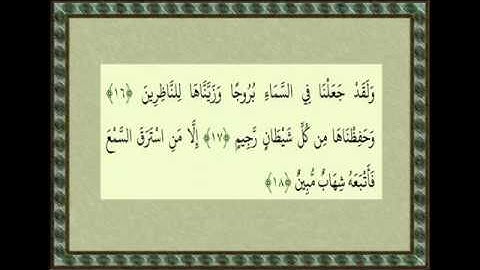 وَلَقَدْ جَعَلْنَا فِي السَّمَاءِ بُرُوجًا وَزَيَّنَّاهَا لِلنَّاظِرِينَ ﴿١٦﴾
وَحَفِظْنَاهَا مِن كُلِّ شَيْطَانٍ رَّجِيمٍ ﴿١٧﴾ إِلَّا مَنِ اسْتَرَقَ السَّمْعَ
فَأَتْبَعَهُ شِهَابٌ مُّبِينٌ ﴿١٨﴾